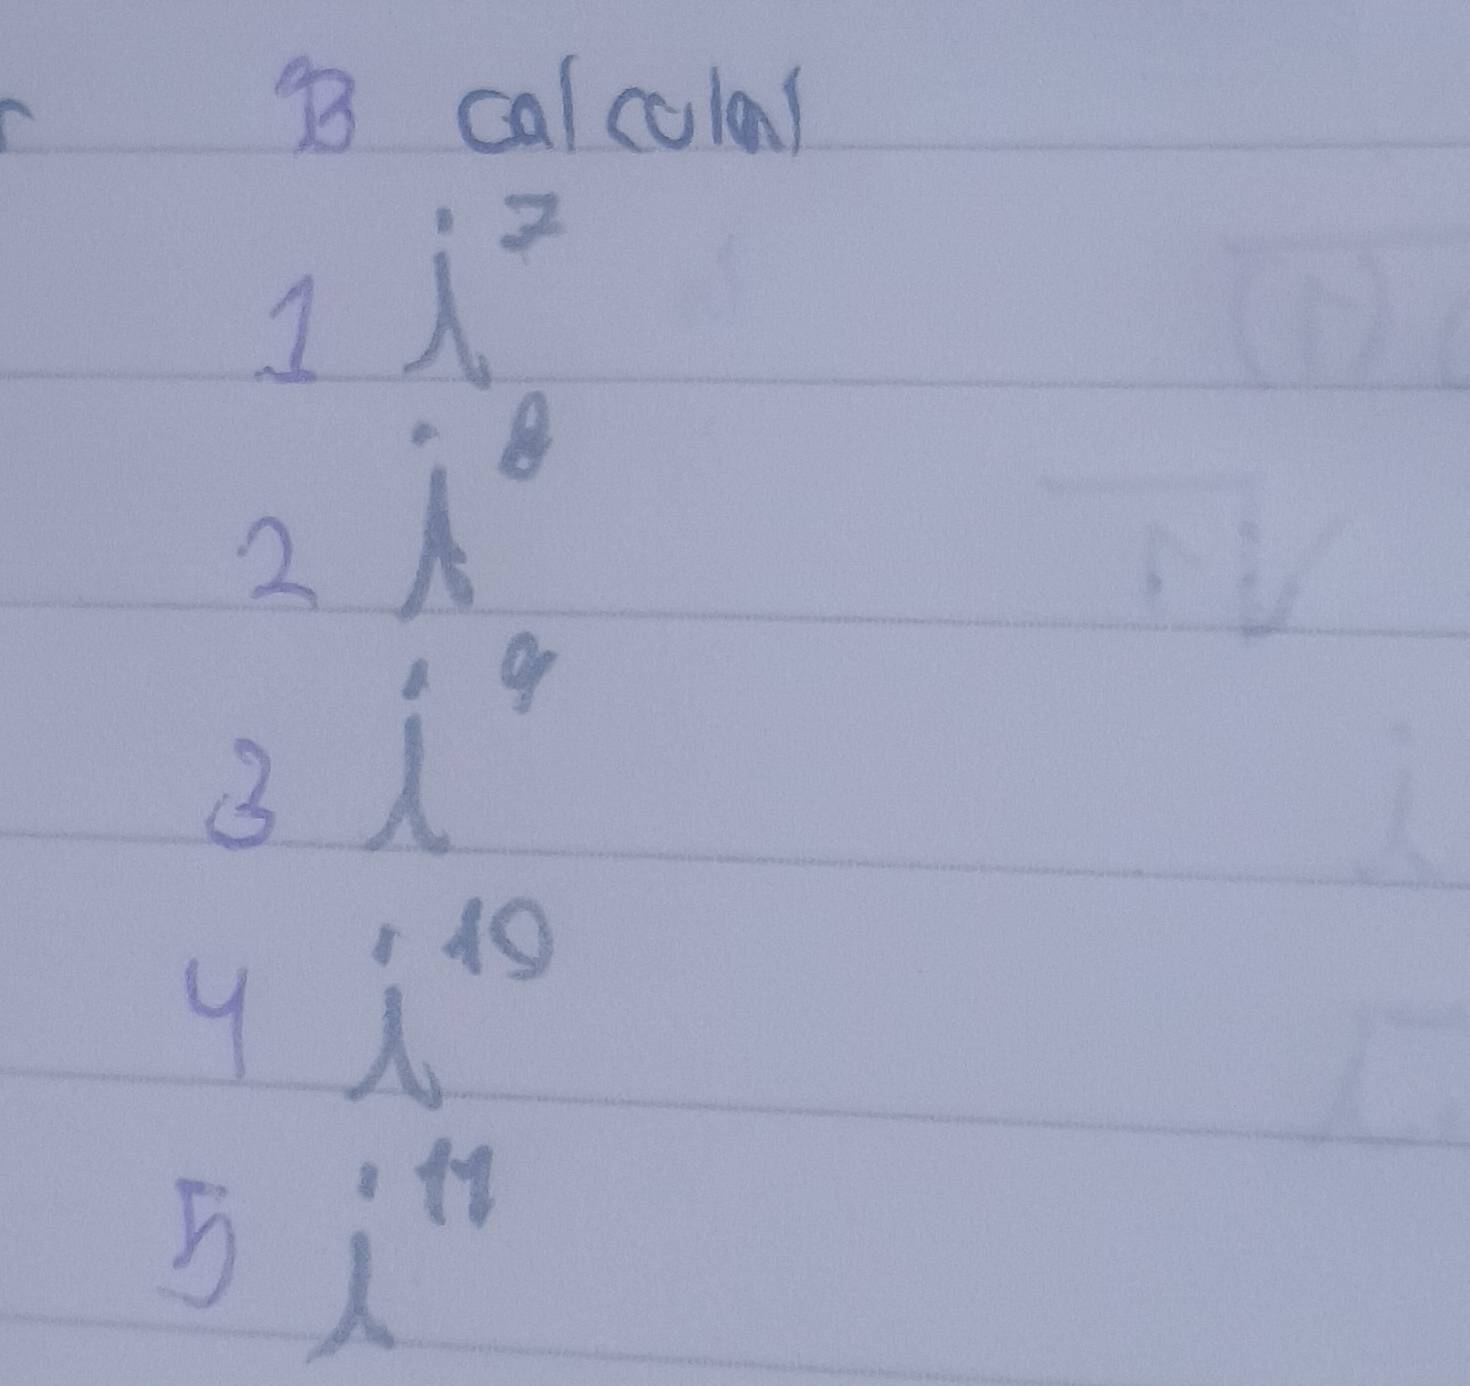 B calcular
1 i⁷
2 i⁸
3 i⁹
4 i¹⁰
5 i¹¹